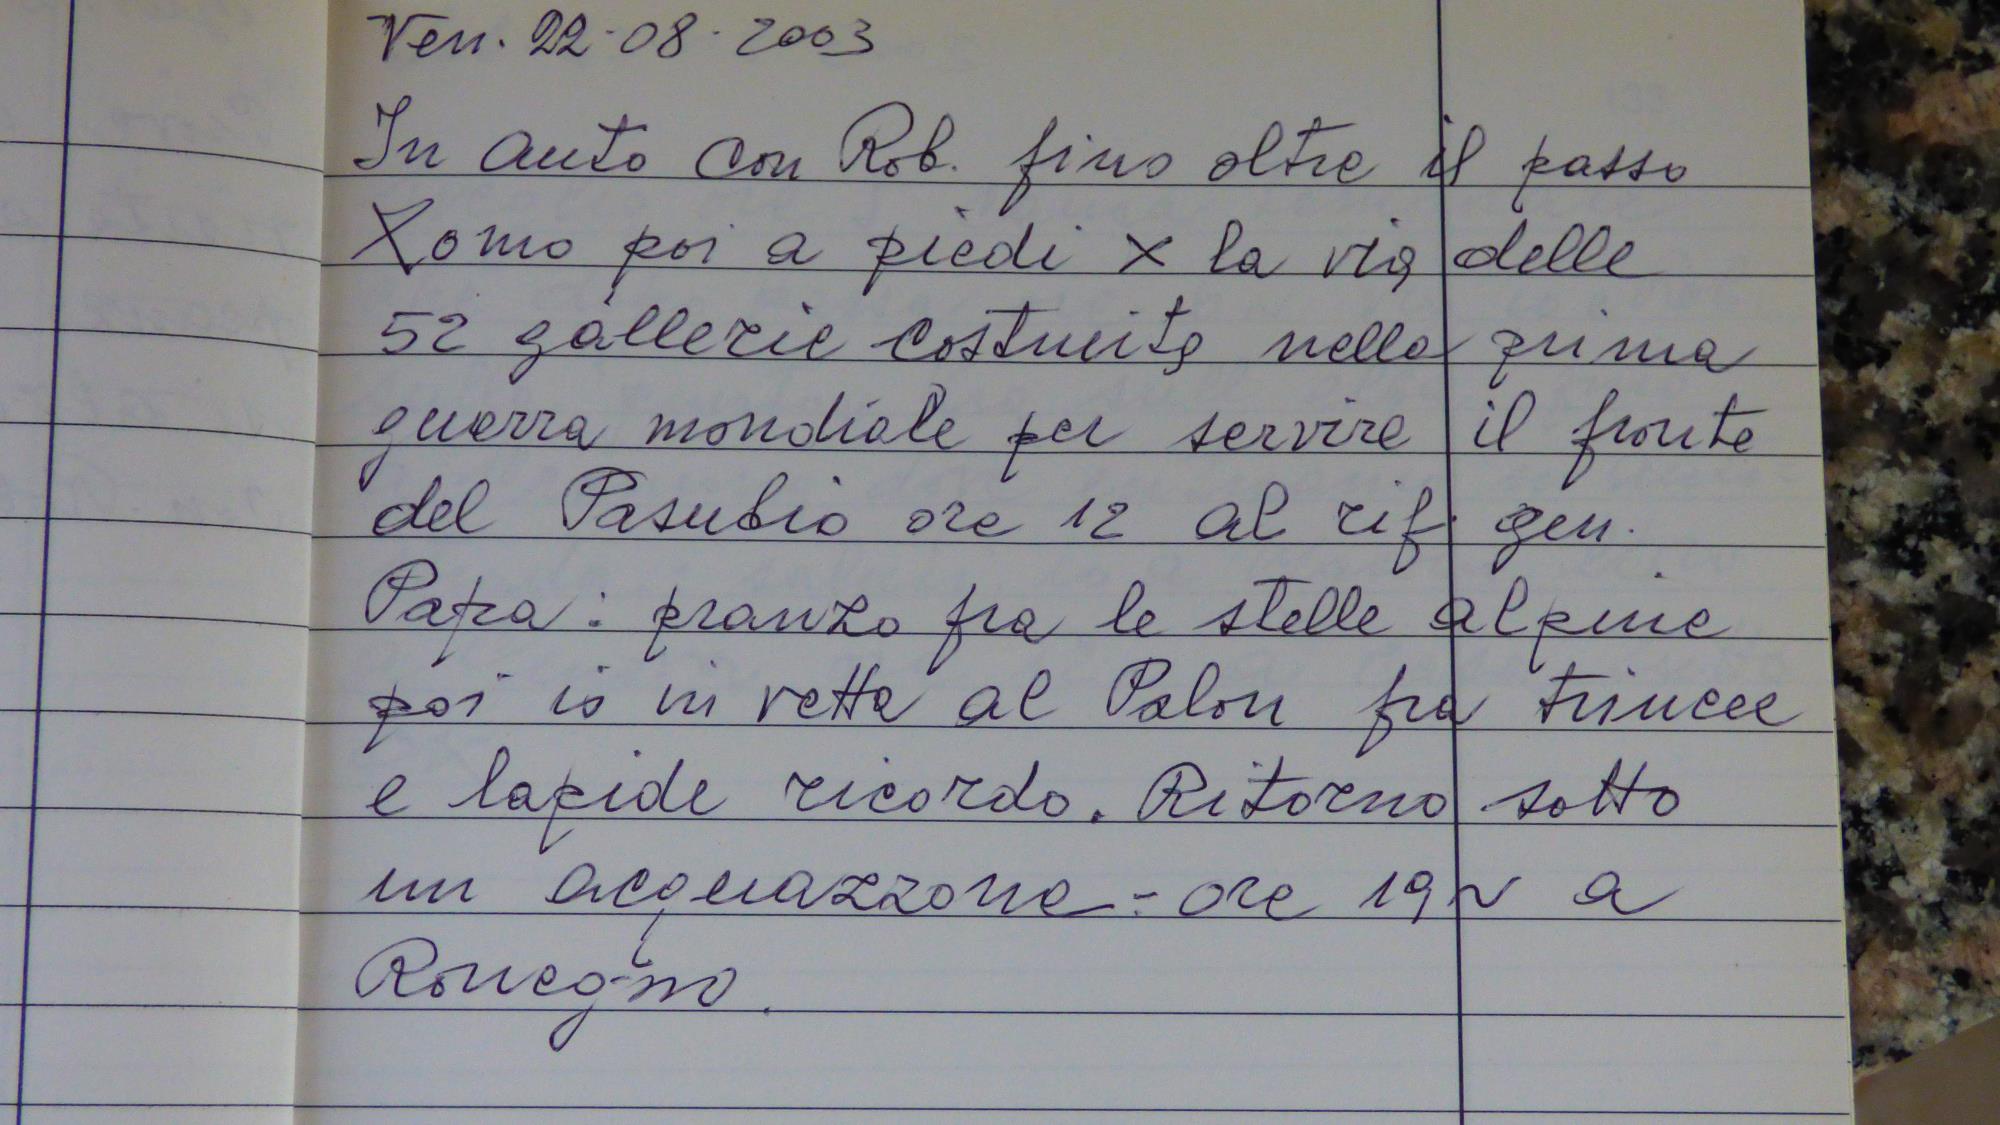 Ven. 22.08.2003
In auto con Rob. fino oltre il passo
Xomo poi a piedi x la via delle
52 gallerie costruita nella prima
guerra mondiale per servire il fronte
del Pasubio ore 12 al rif. gen.
Papa: pranzo fra le stelle alpine
poi io in vetta al Palon fra trincee
e lapide ricordo. Ritorno sotto
un acquazzone - ore 19 ~ a
Roncegno.